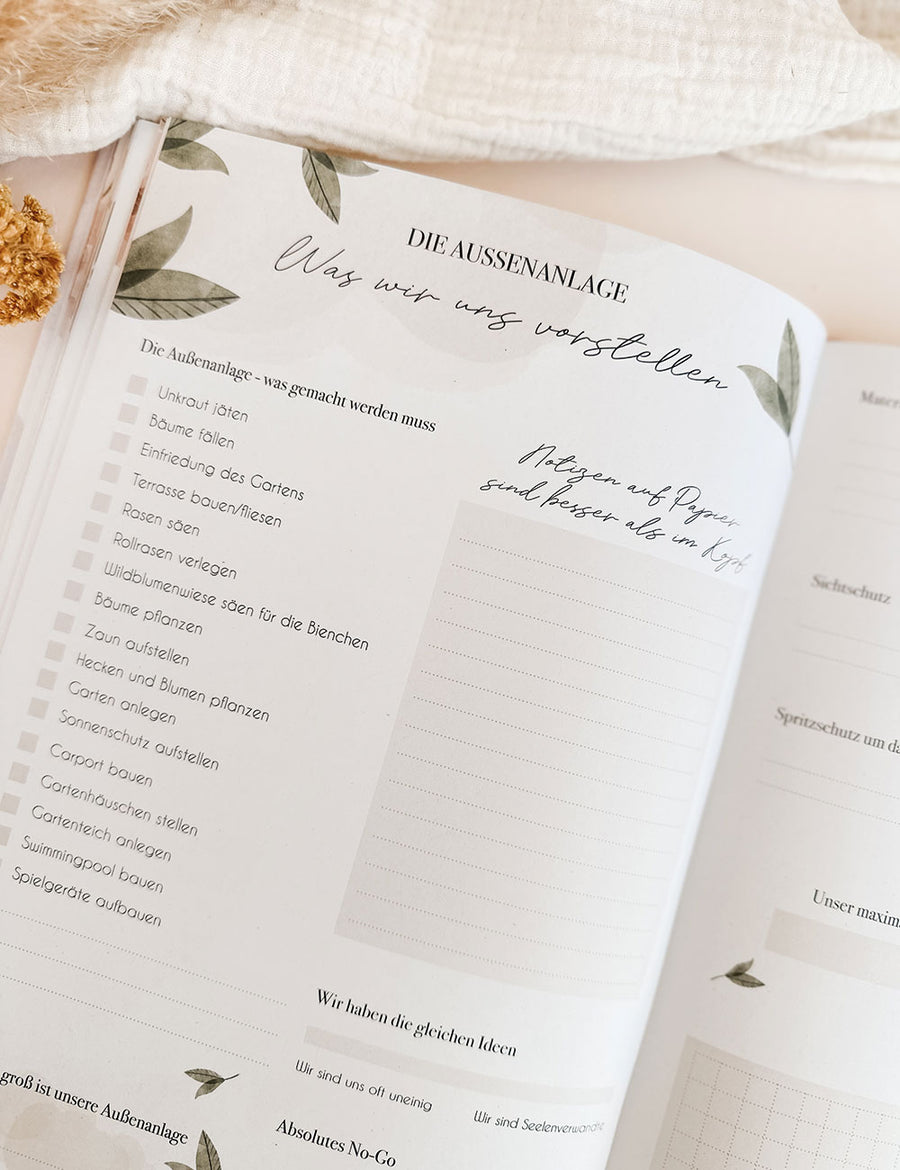 DIE AUSSENANLAGE
Was wir uns vorstellen
Die Außenanlage - was gemacht werden muss
Unkraut jäten
Bäume fällen
Einfriedung des Gartens
Terrasse bauen/fliesen
Rasen säen
Rollrasen verlegen
Wildblumenwiese säen für die Bienchen
Bäume pflanzen
Zaun aufstellen
Hecken und Blumen pflanzen
Garten anlegen
Sonnenschutz aufstellen
Carport bauen
Gartenhäuschen stellen
Gartenteich anlegen
Swimmingpool bauen
Spielgeräte aufbauen
Notizen auf Papier
sind besser als im Kopf
Wir haben die gleichen Ideen
Wir sind uns oft uneinig
Wir sind Seelenverwandte
groß ist unsere Außenanlage
Absolutes No-Go
Sichtschutz
Spritzschutz um
Unser